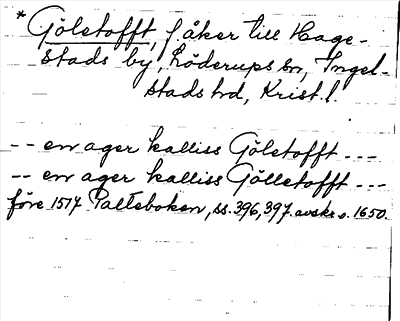 * Gölstofft, f åker till Hage-
stads by, Löderups sn, Ingel-
stads hd, Krist. l.
-- en ager kalliss Gölstofft ---
-- en ager kalliss Gölletofft ---
före 1517 Palteboken, ss. 396, 397. avskr. o. 1650.